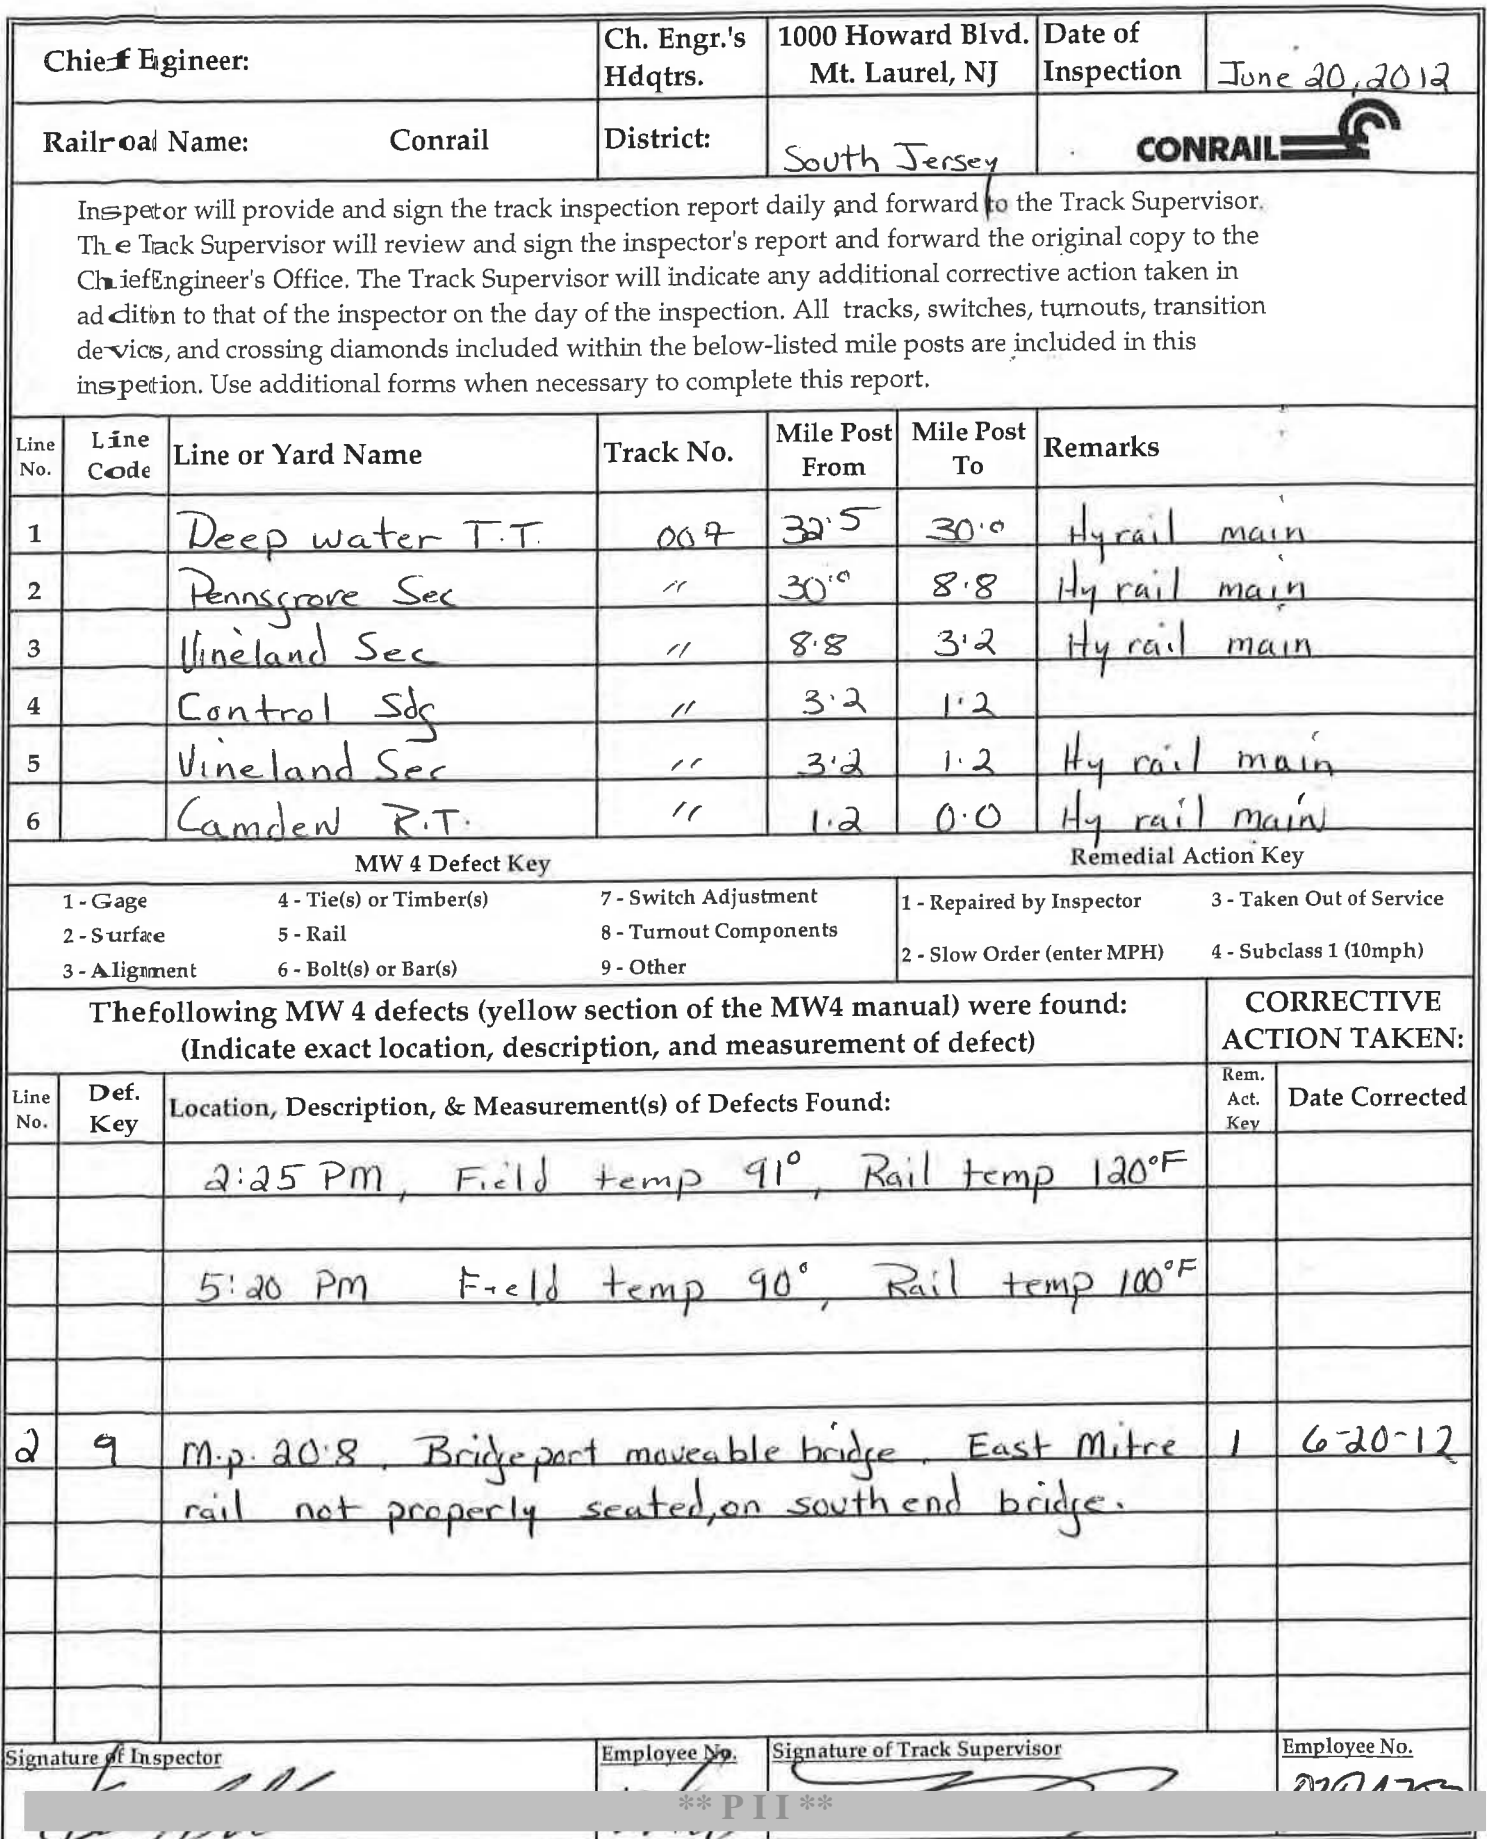 Chief Egineer:
Ch. Engr.'s Hdqtrs.
1000 Howard Blvd. Mt. Laurel, NJ
Date of Inspection
June 20, 2012
Railroad Name: Conrail
District:
South Jersey
CONRAIL
Inspector will provide and sign the track inspection report daily and forward to the Track Supervisor.
The Track Supervisor will review and sign the inspector's report and forward the original copy to the
Chief Engineer's Office. The Track Supervisor will indicate any additional corrective action taken in
addition to that of the inspector on the day of the inspection. All tracks, switches, turnouts, transition
devices, and crossing diamonds included within the below-listed mile posts are included in this
inspection. Use additional forms when necessary to complete this report.
Line No. Line Code Line or Yard Name Track No. Mile Post From Mile Post To Remarks
1 Deep water T.T. 007 32.5 30.0 Hyrail main
2 Pennsgrove Sec " 30.0 8.8 Hy rail main
3 Vineland Sec " 8.8 3.2 Hy rail main
4 Control Sdg " 3.2 1.2
5 Vineland Sec " 3.2 1.2 Hy rail main
6 Camden R.T. " 1.2 0.0 Hy rail main
MW 4 Defect Key Remedial Action Key
1 - Gage 4 - Tie(s) or Timber(s) 7 - Switch Adjustment 1 - Repaired by Inspector 3 - Taken Out of Service
2 - Surface 5 - Rail 8 - Turnout Components
2 - Slow Order (enter MPH) 4 - Subclass 1 (10mph)
3 - Alignment 6 - Bolt(s) or Bar(s) 9 - Other
The following MW 4 defects (yellow section of the MW4 manual) were found:
(Indicate exact location, description, and measurement of defect)
CORRECTIVE
ACTION TAKEN:
Line No. Def. Key Location, Description, & Measurement(s) of Defects Found: Rem. Act. Key Date Corrected
2:25 PM, Field temp 91°, Rail temp 120°F
5:20 PM Field temp 90°, Rail temp 100°F
2 9 M.p. 20.8, Bridgeport moveable bridge. East Mitre 1 6-20-12
rail not properly seated, on south end bridge.
Signature of Inspector Employee No. Signature of Track Supervisor Employee No.
** P I I **